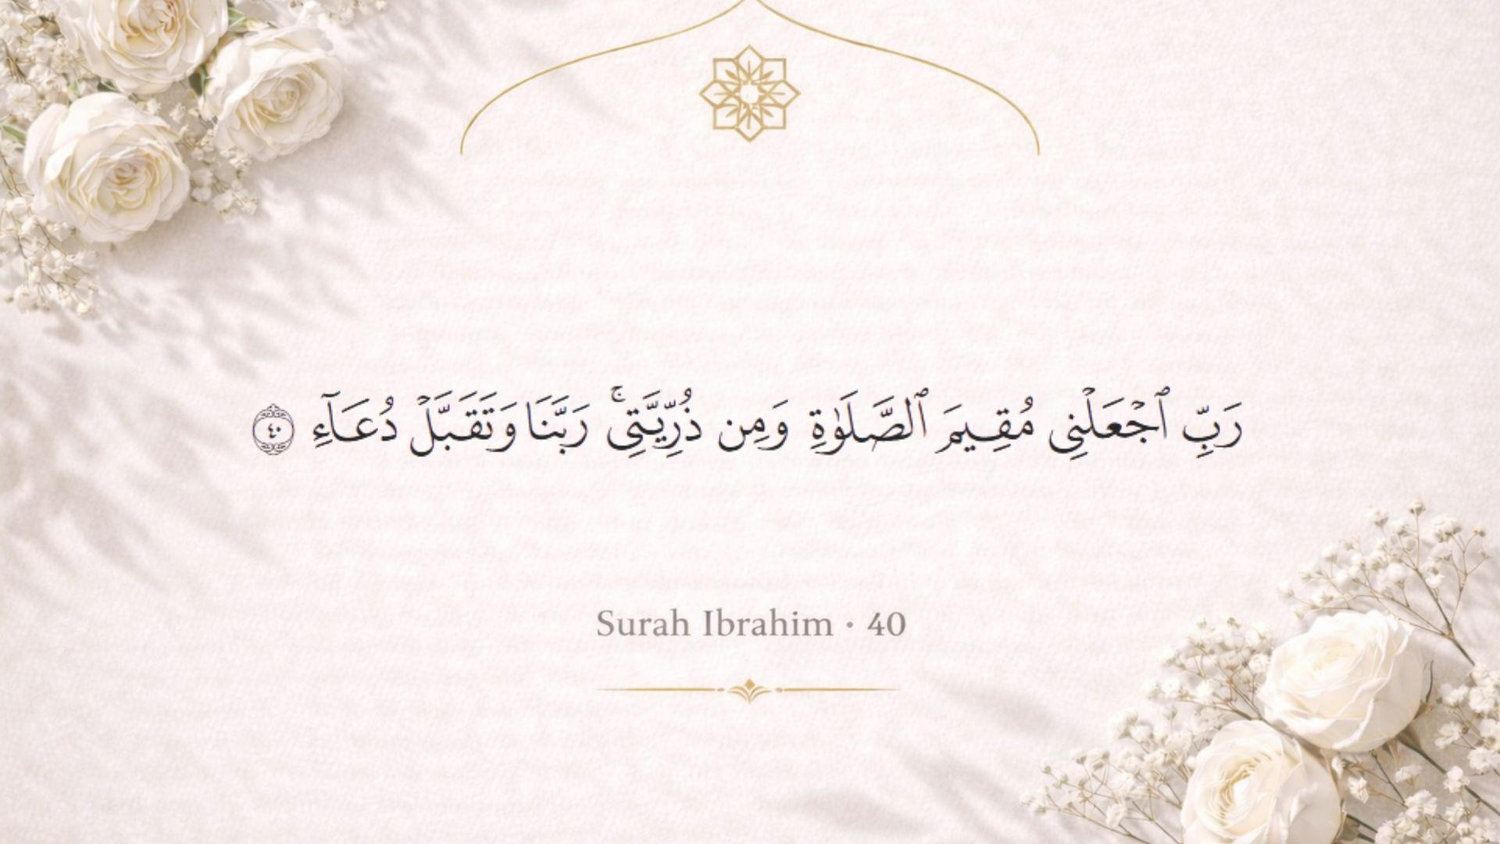 رَبِّ ٱجْعَلْنِى مُقِيمَ ٱلصَّلَوٰةِ وَمِن ذُرِّيَّتِى ۚ رَبَّنَا وَتَقَبَّلْ دُعَآءِ ۝٤٠
Surah Ibrahim · 40